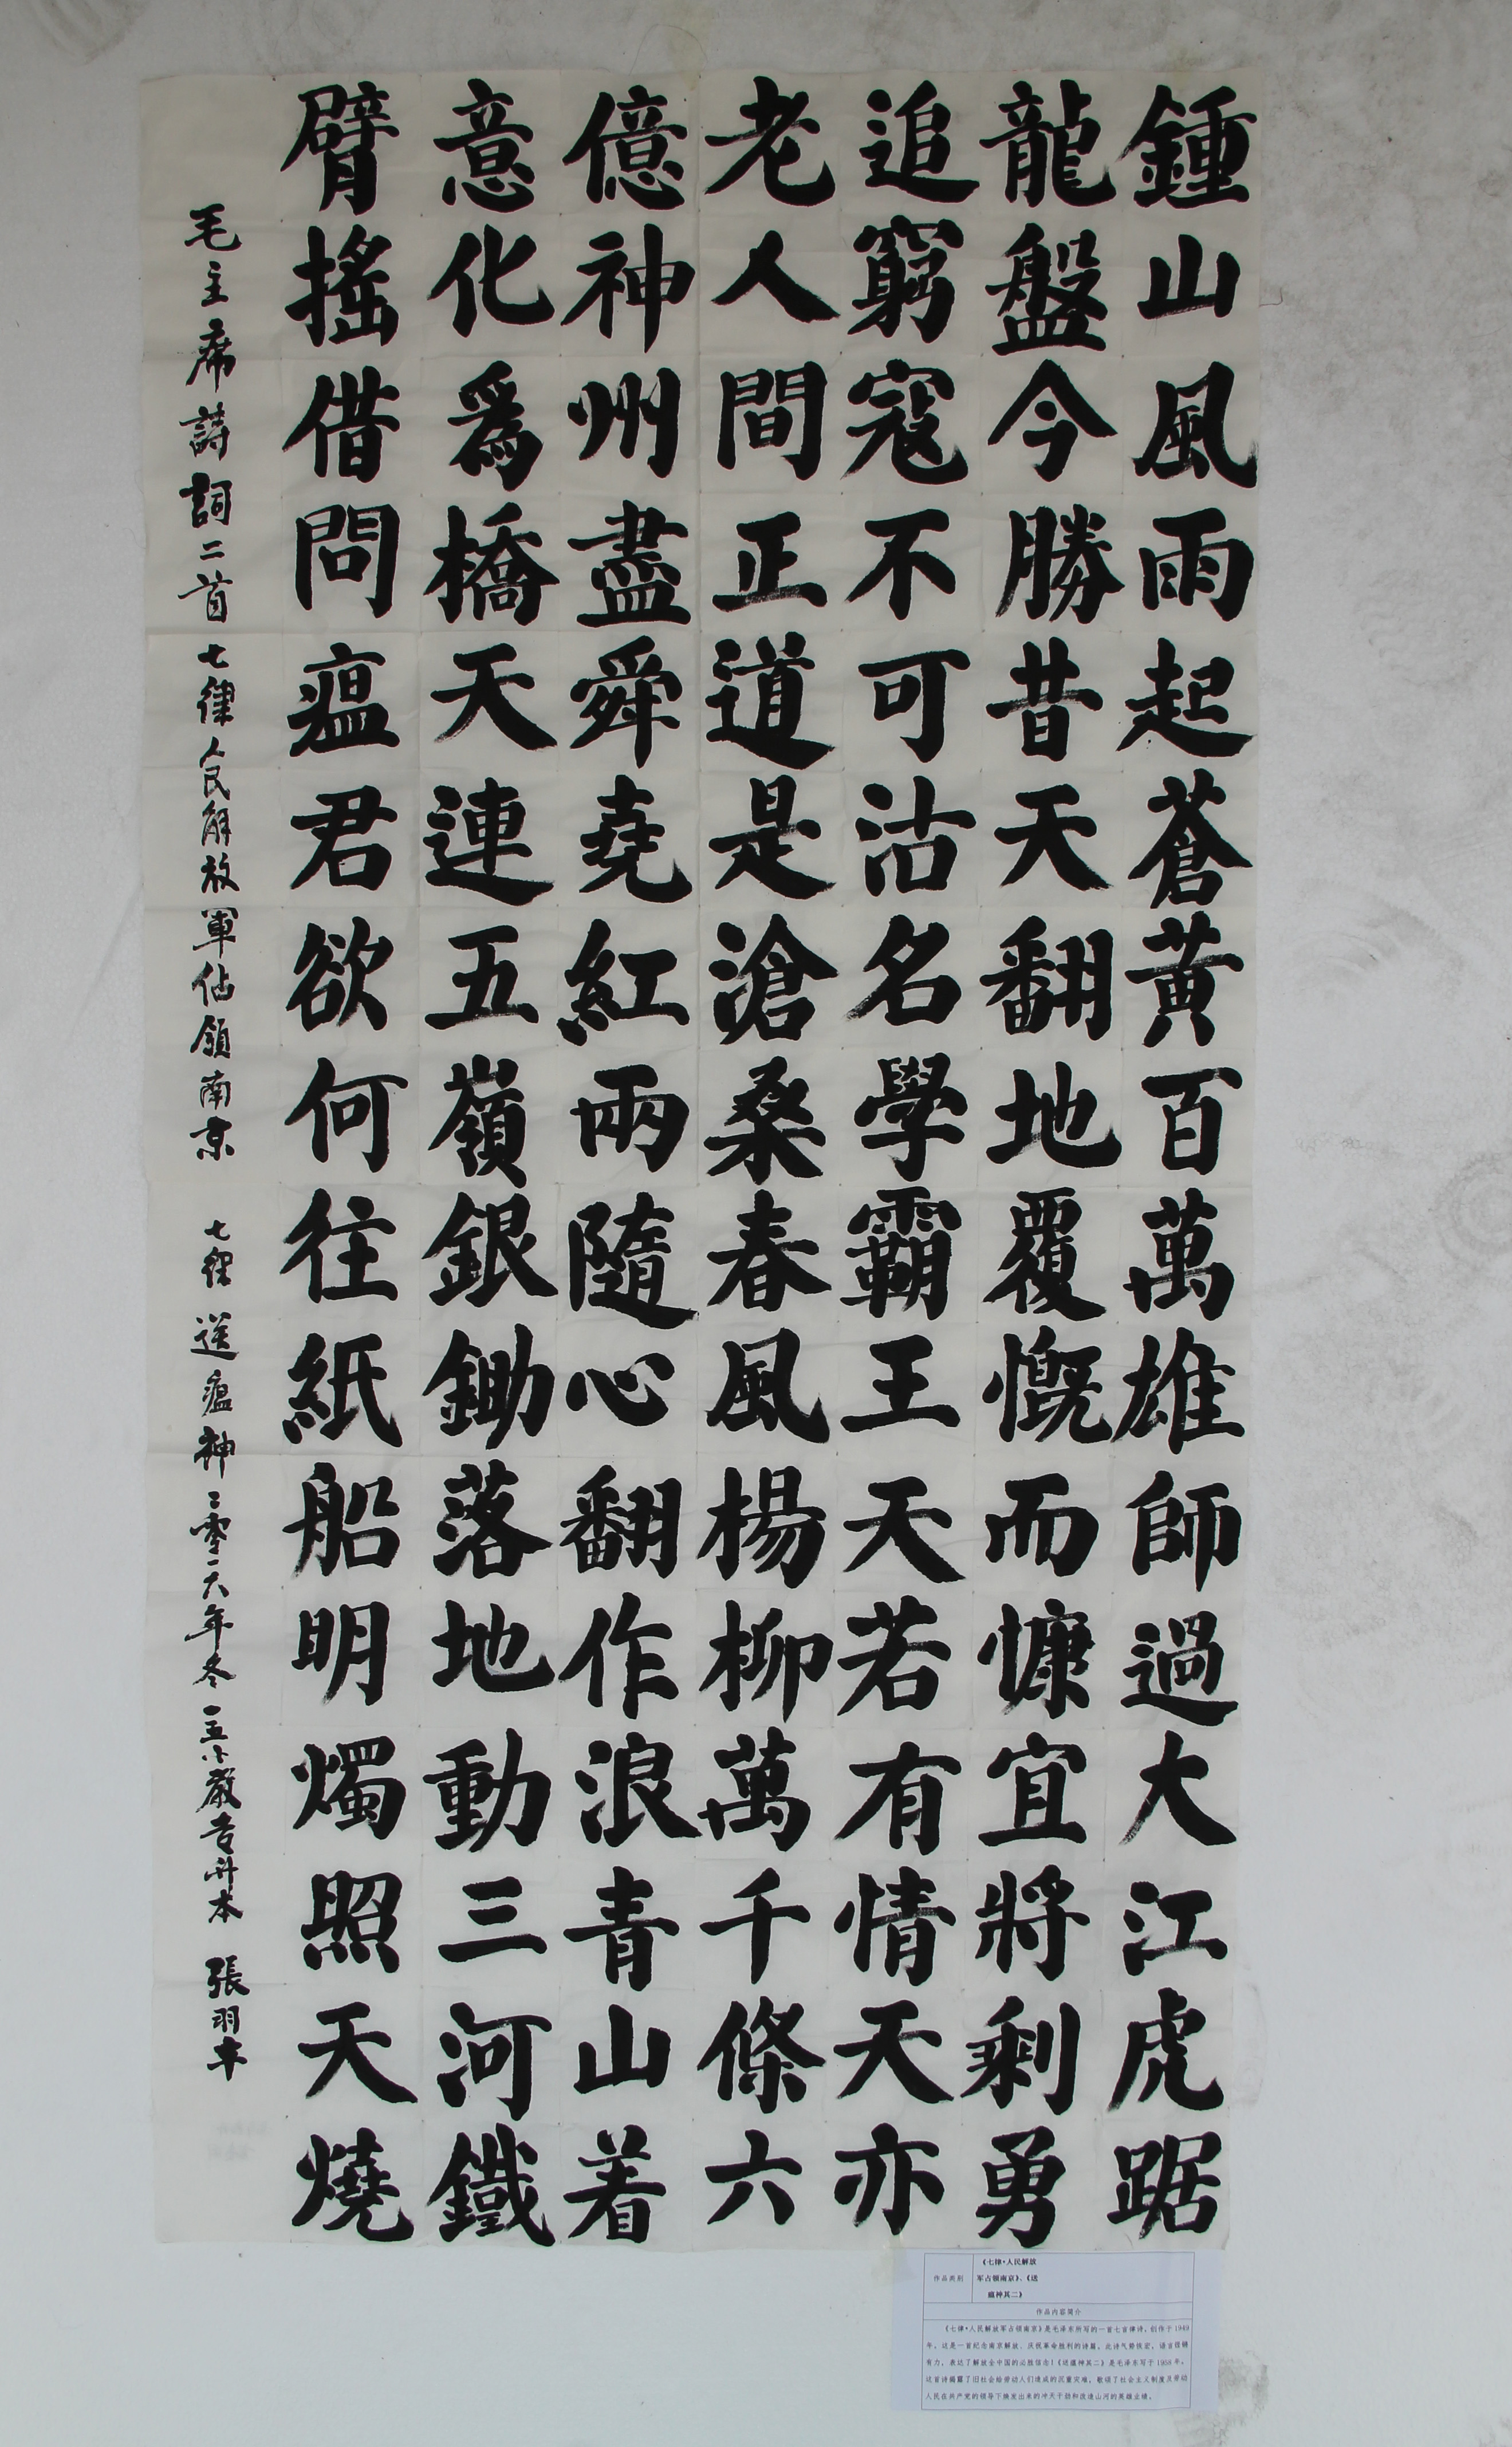 鍾山風雨起蒼黃百萬雄師過大江虎踞
龍盤今勝昔天翻地覆慨而慷宜將剩勇
追窮寇不可沽名學霸王天若有情天亦
老人間正道是滄桑春風楊柳萬千條六
億神州盡舜堯紅雨隨心翻作浪青山着
意化爲橋天連五嶺銀鋤落地動三河鐵
臂搖借問瘟君欲何往紙船明燭照天燒
毛主席詩詞二首七律人民解放軍佔領南京 七律送瘟神二零一六年冬 張羽
作品类别
《七律·人民解放
军占领南京》、《送
瘟神其二》
作品内容简介
《七律·人民解放军占领南京》是毛泽东所写的一首七言律诗，创作于1949
年。这是一首纪念南京解放、庆祝革命胜利的诗篇。此诗气势恢宏，语言铿锵
有力，表达了解放全中国的必胜信念！《送瘟神其二》是毛泽东写于1958年。
这首诗揭露了旧社会给劳动人们造成的沉重灾难，歌颂了社会主义制度及劳动
人民在共产党的领导下焕发出来的冲天干劲和改造山河的英雄业绩。